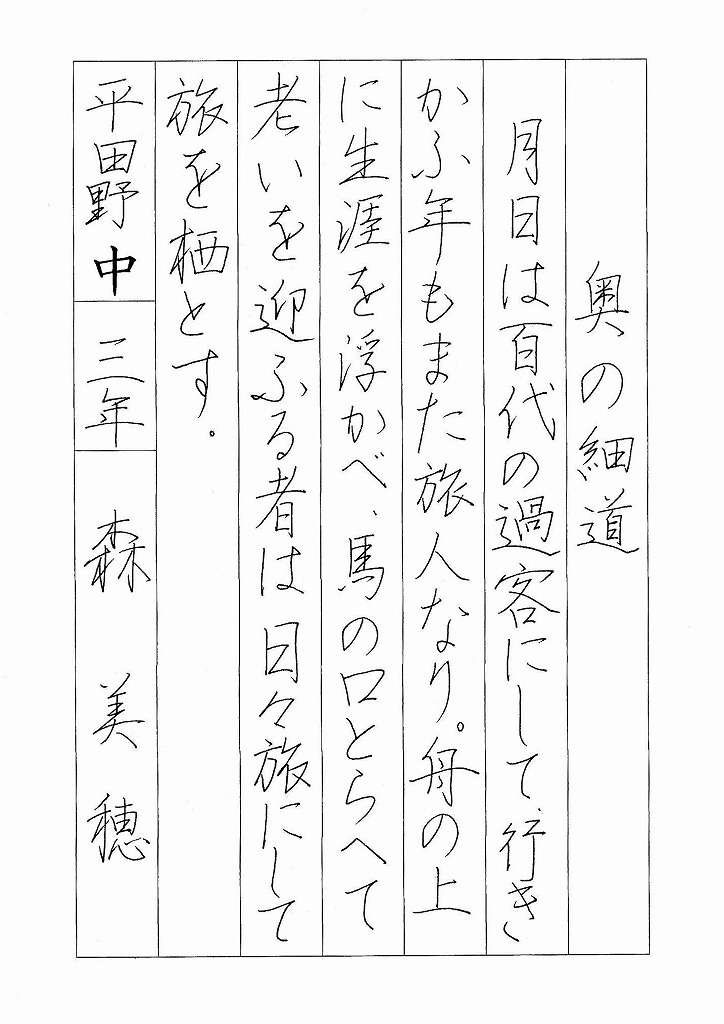 奥の細道
月日は百代の過客にして、行き
かふ年もまた旅人なり。舟の上
に生涯を浮かべ、馬の口とらへて
老いを迎ふる者は日々旅にして
旅を栖とす。
平田野中 三年 森 美穂